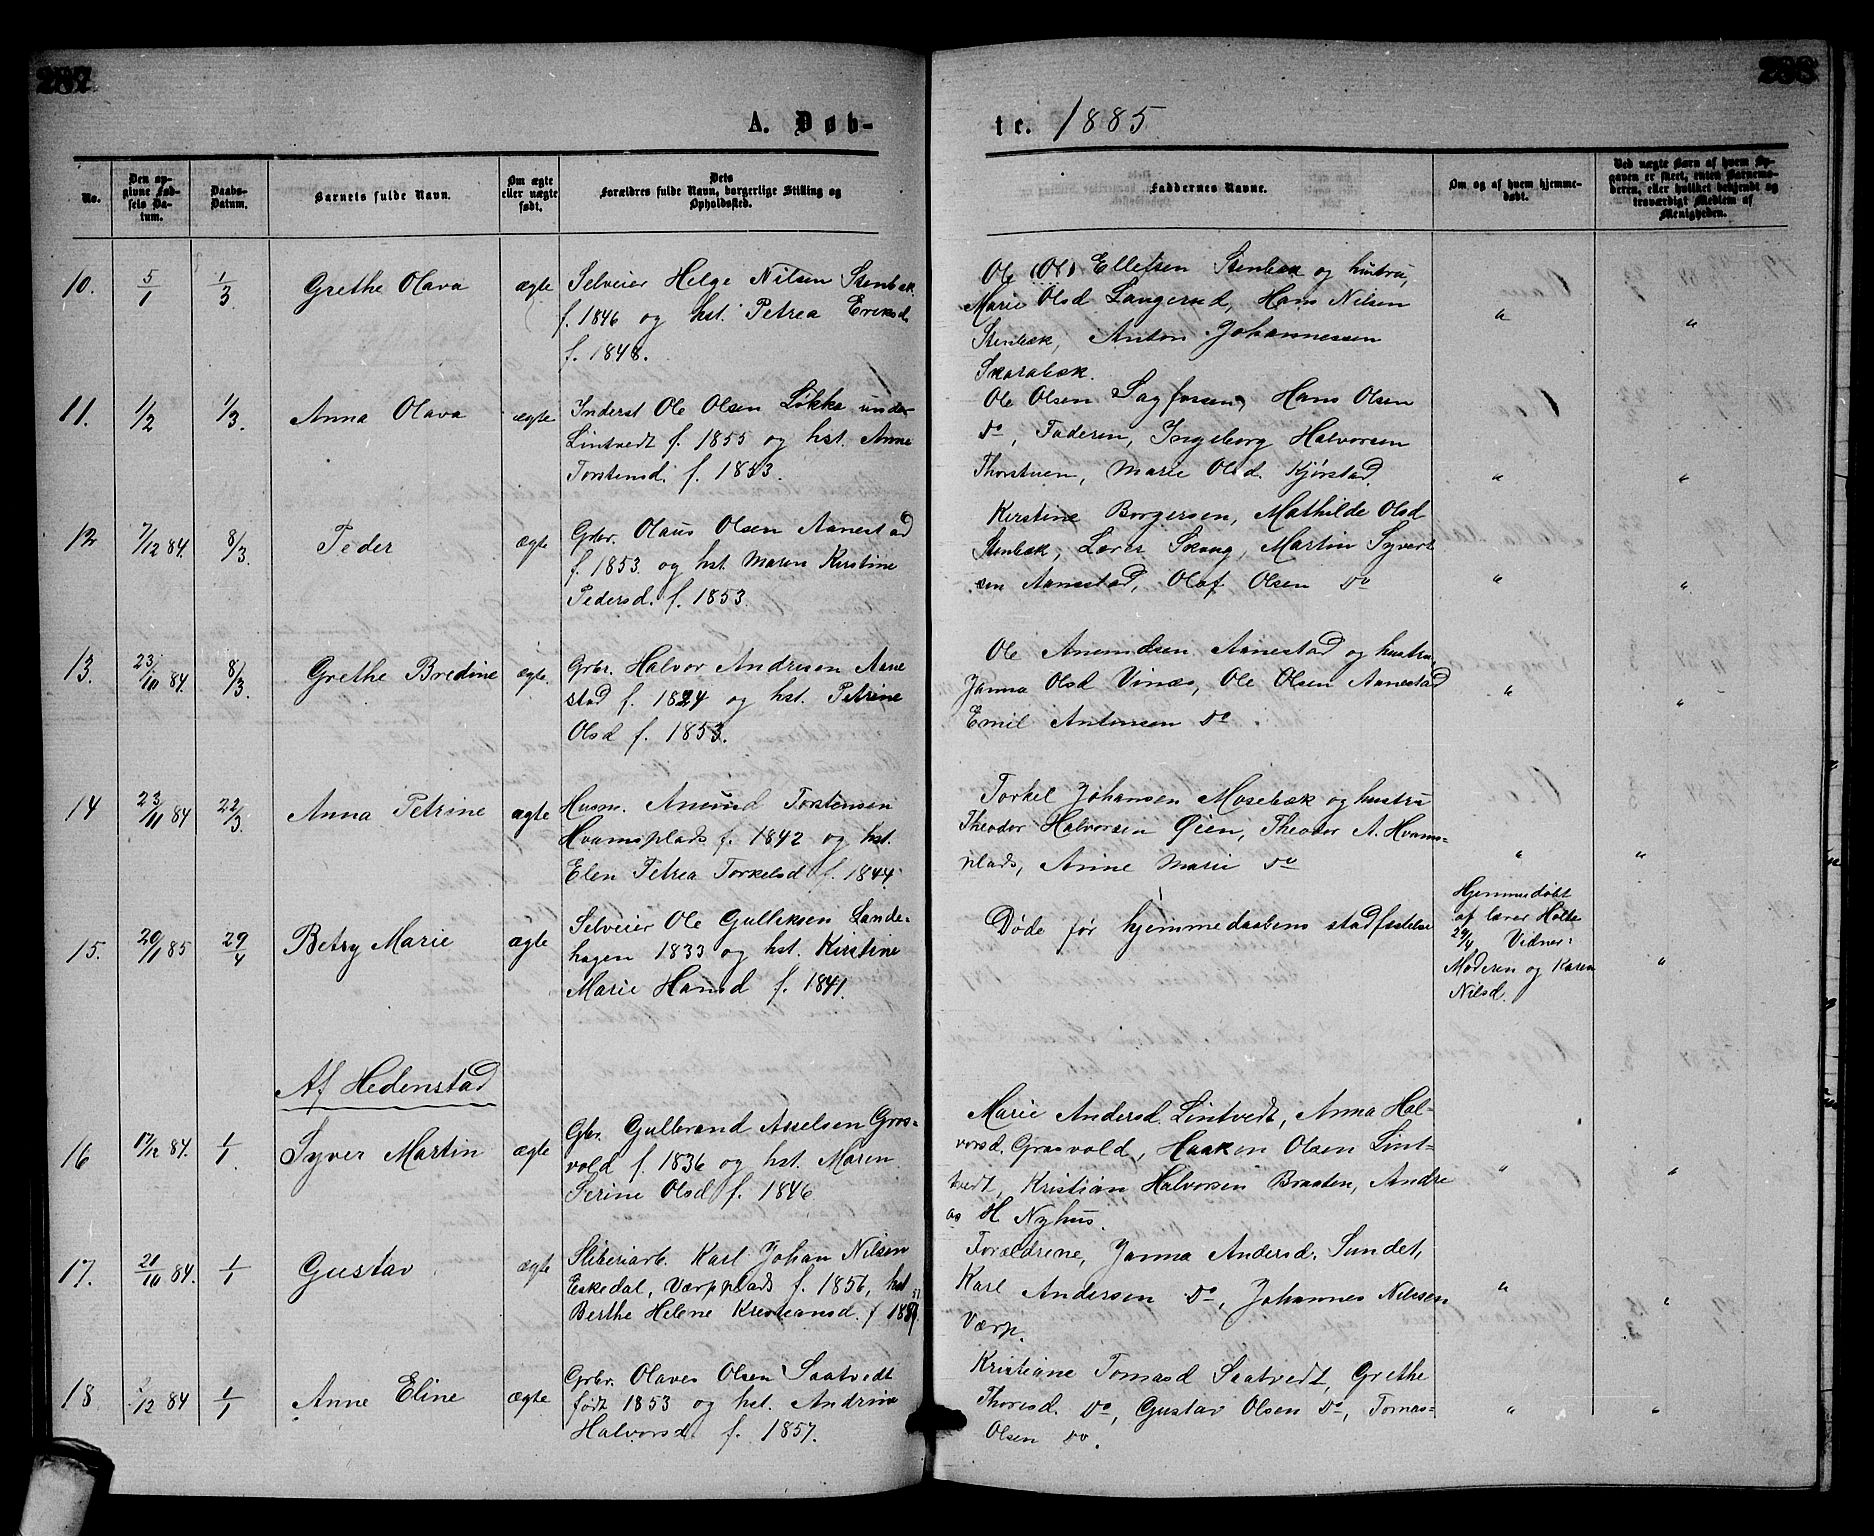 287
288
A. Døb-
te. 1885
No.
Den op-
givne Fød-
sels Da-
tum.
Daabs-
Datum.
Barnets fulde Navn.
Om ægte
eller uægte
født.
Dets
Forældres fulde Navn, borgerlige Stilling og
Opholdssted.
Faddernes Navne.
Om og af hvem hjemme-
døbt.
Ved uægte Børn af hvem Op-
gaven er skeet, enten Barnemo-
deren, eller hvilket bekjendt og
troværdigt Medlem af
Menigheden.
10. 5/1 1/3 Grethe Olava ægte Selveier Helge Nilsen Stenbæk
f. 1846 og hst. Petrea Eriksd.
f. 1848.
Ole (Ol) Ellefsen Stenbæk og hustru,
Marie Olsd Langerud, Hans Nilsen
Stenbæk, Anton Johannessen
Skarabæk.
" "
11. 1/2 1/3. Anna Olava ægte Inderst Ole Olsen Løkka under
Lintvedt f. 1855 og hst. Anne
Torstensd. f. 1853.
Ole Olsen Sagfossen, Hans Olsen
Do, Faderen, Ingeborg Halvorsen
Thorstuen, Marie Olsd. Kjørstad.
" "
12 7/12 84. 8/3. Peder ægte Grbr. Olaus Olsen Aanestad
f. 1853. og hst. Maren Kirstine
Pedersd. f. 1853.
Kirstine Borgersen, Mathilde Olsd
Stenbæk, Lærer Skoug, Martin Syvert
sen Aanestad, Olaf Olsen Do
" "
13. 23/10 84. 8/3. Grethe Bredine ægte. Grbr. Halvor Andresen Aane
stad f. 1824 og hst. Petrine
Olsd f. 1853.
Ole Anundsen Aanestad og hustru,
Janna Olsd Vinæs, Ole Olsen Aanestad
Emil Antonsen Do
" "
14 23/11 84 22/3. Anna Petrine ægte Husm. Anund Torstensen
Hvamsplads f. 1842 og hst.
Elen Petrea Torkelsd f. 1844.
Torkel Johansen Mosebæk og hustru
Theodor Halvorsen Øien, Theodor A. Hvams-
plads, Anne Marie Do
" "
15. 20/1 85 29/4 Betsy Marie ægte Selveier Ole Gulliksen Lande-
hagen 1833 og hst. Kirstine
Marie Hansd f. 1841.
Døde før hjemmedaabens stadfæstelse
Hjemmedøbt
af lærer Holte
29/4 Vidner:
Moderen og Karen
Nilsd.
"
Af Hedenstad
16 17/12 84. 1/1. Syver Martin ægte Gbr. Gulbrand Asselsen Gros-
vold f. 1836 og hst. Maren
Serine Olsd f. 1846.
Marie Andersd. Lintvedt, Anna Hal-
vorsd. Grosvold, Haaken Olsen Lint-
tvedt, Kristian Halvorsen Braaten, Andre
as H Nyhus.
" "
17. 21/10 84. 1/1 Gustav ægte Sliberiarb. Karl Johan Nilsen
Eskedal, Værpplads f. 1856, hst
Berthe Helene Kristiansd. f
Forældrene, Janna Andersd. Sundet,
Karl Andersen Do, Johannes Nilsen
Værp.
" "
18 /12 84 1/1 Anne Eline ægte Grbr. Olaves Olsen Saatvedt
født 1853 og hst. Andrine
Halvorsd. f. 1857.
Kristiane Tomasd Saatvedt, Grethe
Thoresd. Do, Gustav Olsen Do, Tomas
Olsen Do.
" "